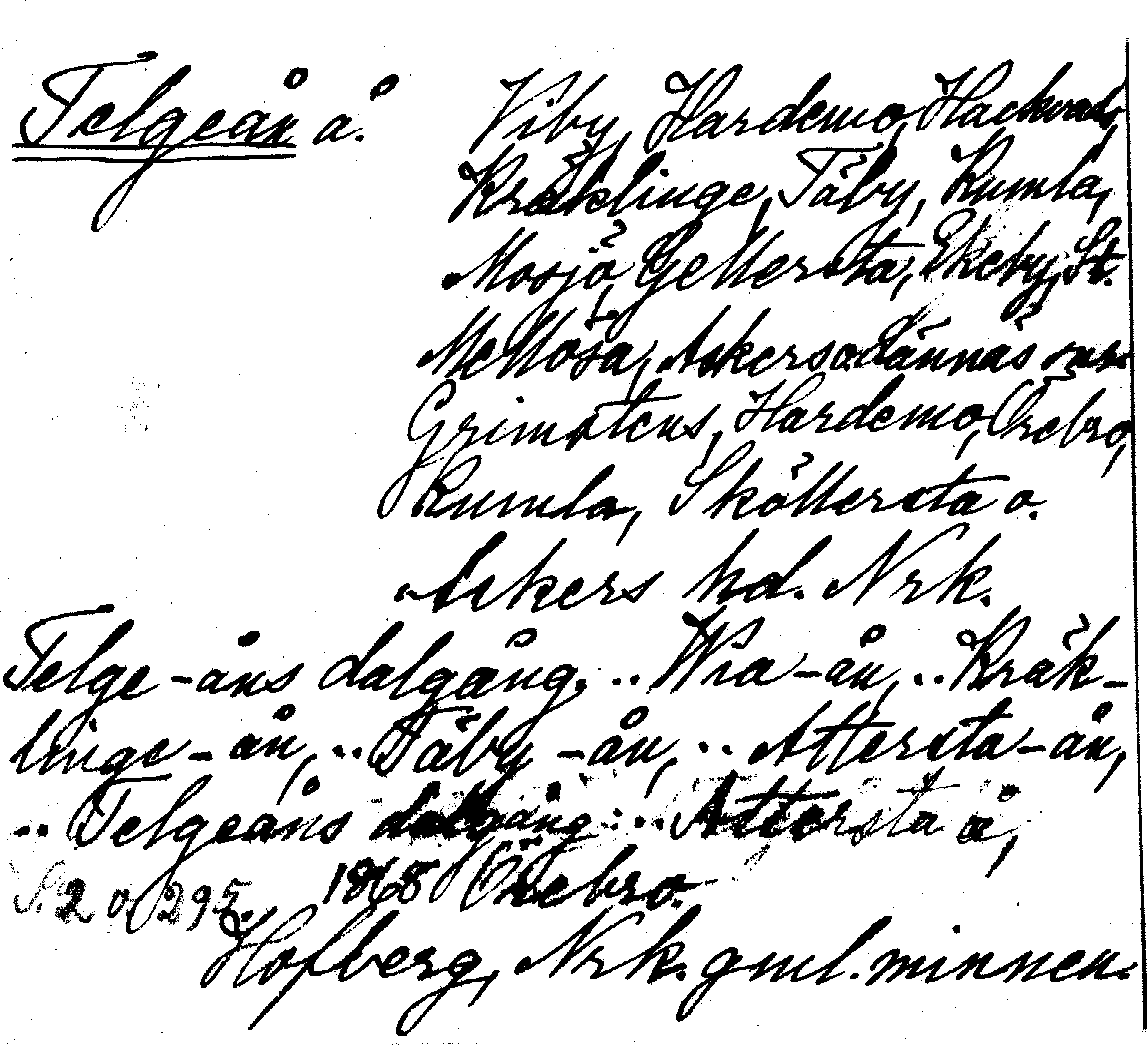 Telgeån å. Viby, Hardemo, Hackvad,
Kräklinge, Täby, Kumla,
Mosjö, Gellersta, Ekeby, St.
Mellösa, Askers socknar
Grimstens, Hardemo, Örebro,
Kumla, Sköllersta o.
Askers hd. Nrk.
Telge-åns dalgång, .. Wia-ån, .. Kräk-
linge-ån, .. Täby-ån, .. Attersta-ån,
.. Telgeåns dalgång .. Attersta å,
S. 2 o. 295. 1868 Örebro.
Hofberg, Nrk. gml. minnen.